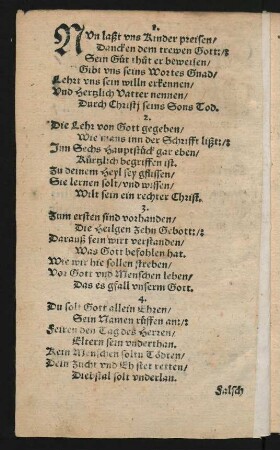 1.
NVn laßt vns Kinder preisen/
Dancken dem trewen Gott:/:
Sein Güt thůt er beweisen/
Gibt vns seins Wortes Gnad/
Lehrt vns sein willn erkennen/
Vnd Hertzlich Vatter nennen/
Durch Christi seins Sons Tod.
2.
Die Lehr von Gott gegeben/
Wie mans inn der Schrifft lißt:/:
Inn Sechs Hauptstück gar eben/
Kürtzlich begriffen ist.
Zu deinem Heyl sey gflissen/
Sie lernen solt/vnd wissen/
Wilt sein ein rechter Christ.
3.
Zum ersten sind vorhanden/
Die Heilgen Zehn Gebott:/:
Darauß sein wirt verstanden/
Was Gott befohlen hat.
Wie wir hie sollen streben/
Vor Gott vnd Menschen leben/
Das es gfall vnserm Gott.
4.
Du solt Gott allein Ehren/
Sein Namen rüffen an:/:
Feiren den Tag des Herren/
Eltern sein vnderthan.
Kein Menschen soltu Tödten/
Dein Zucht vnd Ehstet retten/
Diebstal solt vnderlan.
Falsch